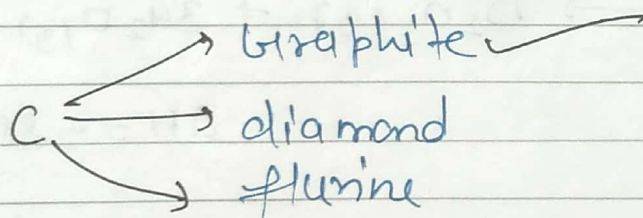 Graphite
C diamond
flurine